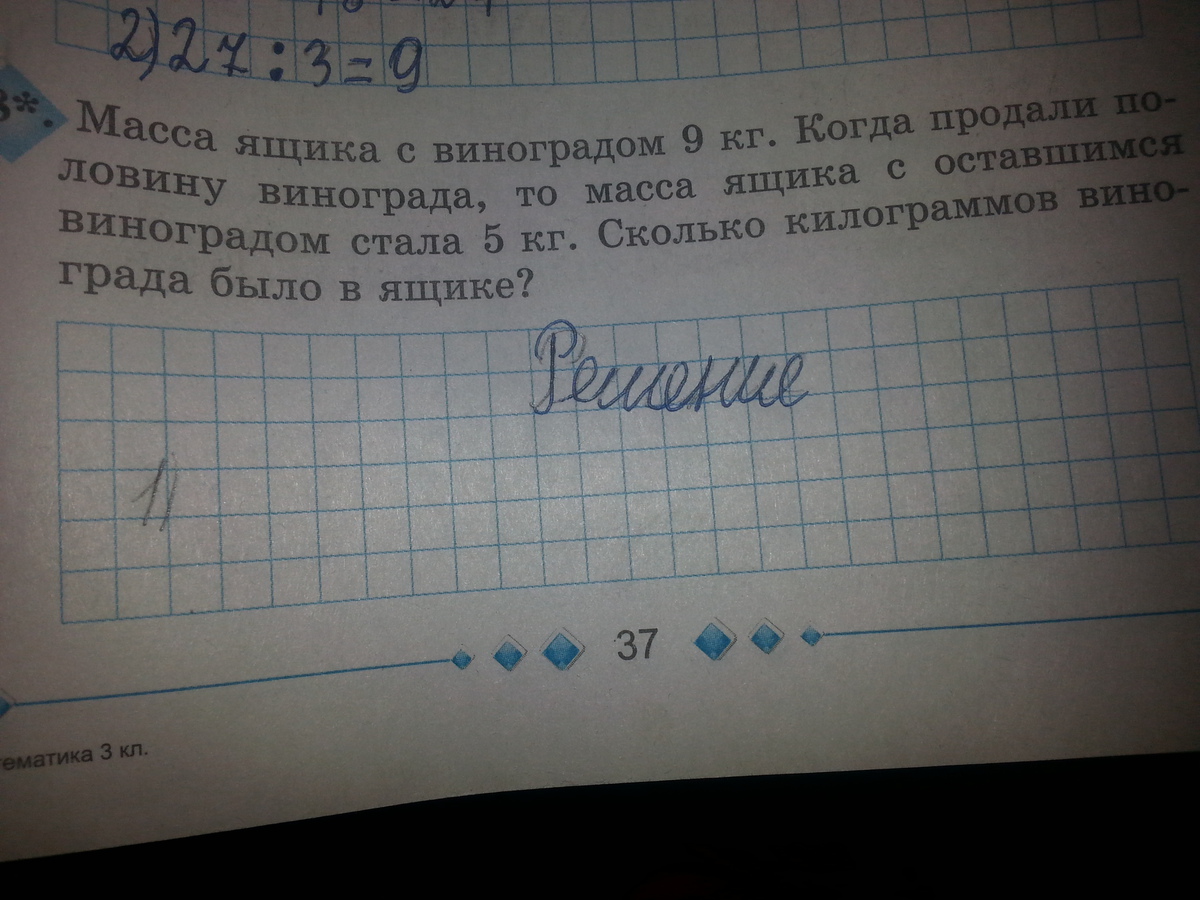 2) 27 : 3 = 9
3*. Масса ящика с виноградом 9 кг. Когда продали по-
ловину винограда, то масса ящика с оставшимся
виноградом стала 5 кг. Сколько килограммов вино-
града было в ящике?
Решение
1)
37
тематика 3 кл.